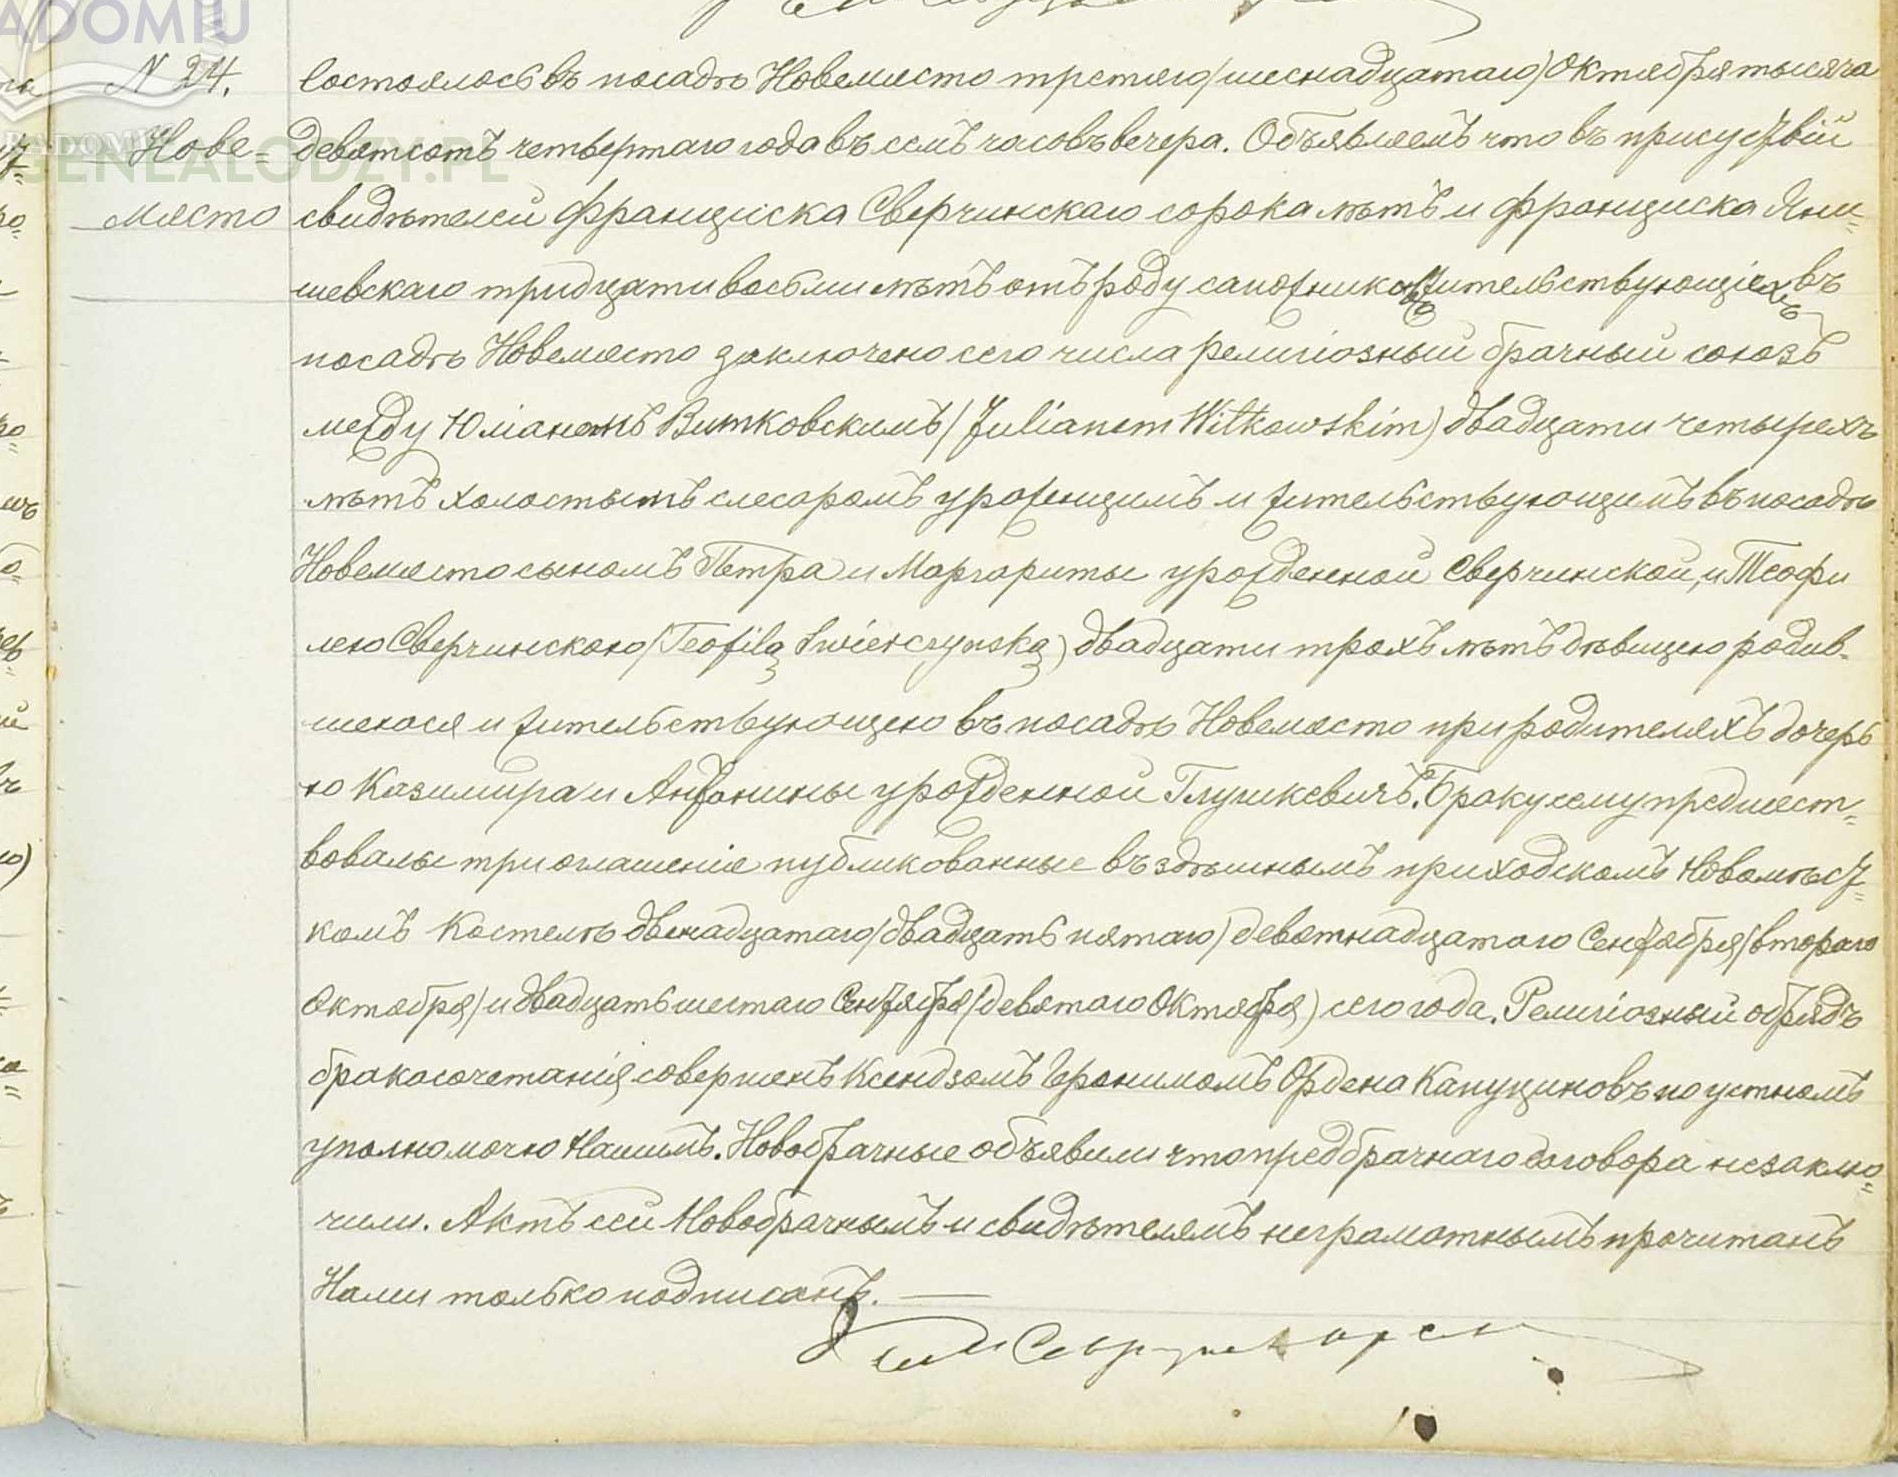 ADOMIU
RADOMIU
GENEALODZY.PL
N 24.
Нове=
място
Состоялось въ посадѣ Новемясто третяго (шеснадцатаго) Октября тысяча
девятсотъ четвертаго года въ семъ часовъ вечера. Объявляемъ что въ присуствій
свидѣтелей Франциска Сверчинскаго сорока лѣтъ и Франциска Яни=
шевскаго тридцати восьми лѣтъ отъ роду сапожниковъ жительствующихъ въ
посадѣ Новемясто заключено сего числа религіозный брачный союзъ
между Юліаномъ Витковскимъ (Julianem Witkowskim) двадцати четырехъ
лѣтъ холостымъ слесаромъ урожецимъ и жительствующимъ въ посадѣ
Новемясто сыномъ Петра и Маргариты урожденной Сверчинской, и Теофи
лею Сверчинскою (Teofilą Swierczynską) двадцати трохъ лѣтъ дѣвицею родив=
шеюся и жительствующею въ посадѣ Новемясто при родителяхъ дочерь
ю Казимира и Антонины урожденной Глушкевичъ. Браку сему предшест=
вовалы три оглашеніе публикованные въ здѣшнымъ приходскомъ Новомѣст=
комъ Костелѣ двенадцатаго (двадцать пятаго) девятнадцатаго Сентября (втораго
Октября) и двадцать шестаго Сентября (девятаго Октября) сего года. Религіозный обрядъ
бракосочетанія совершенъ Ксендзомъ Геронимомъ Ордена Капуциновъ по устномъ
уполномочю Нашимъ. Новобрачные объявили что предбрачнаго договора незаклю=
чили. Актъ сей Новобрачнымъ и свидѣтелямъ неграмотнымъ прочитанъ
Нами только подписанъ. —